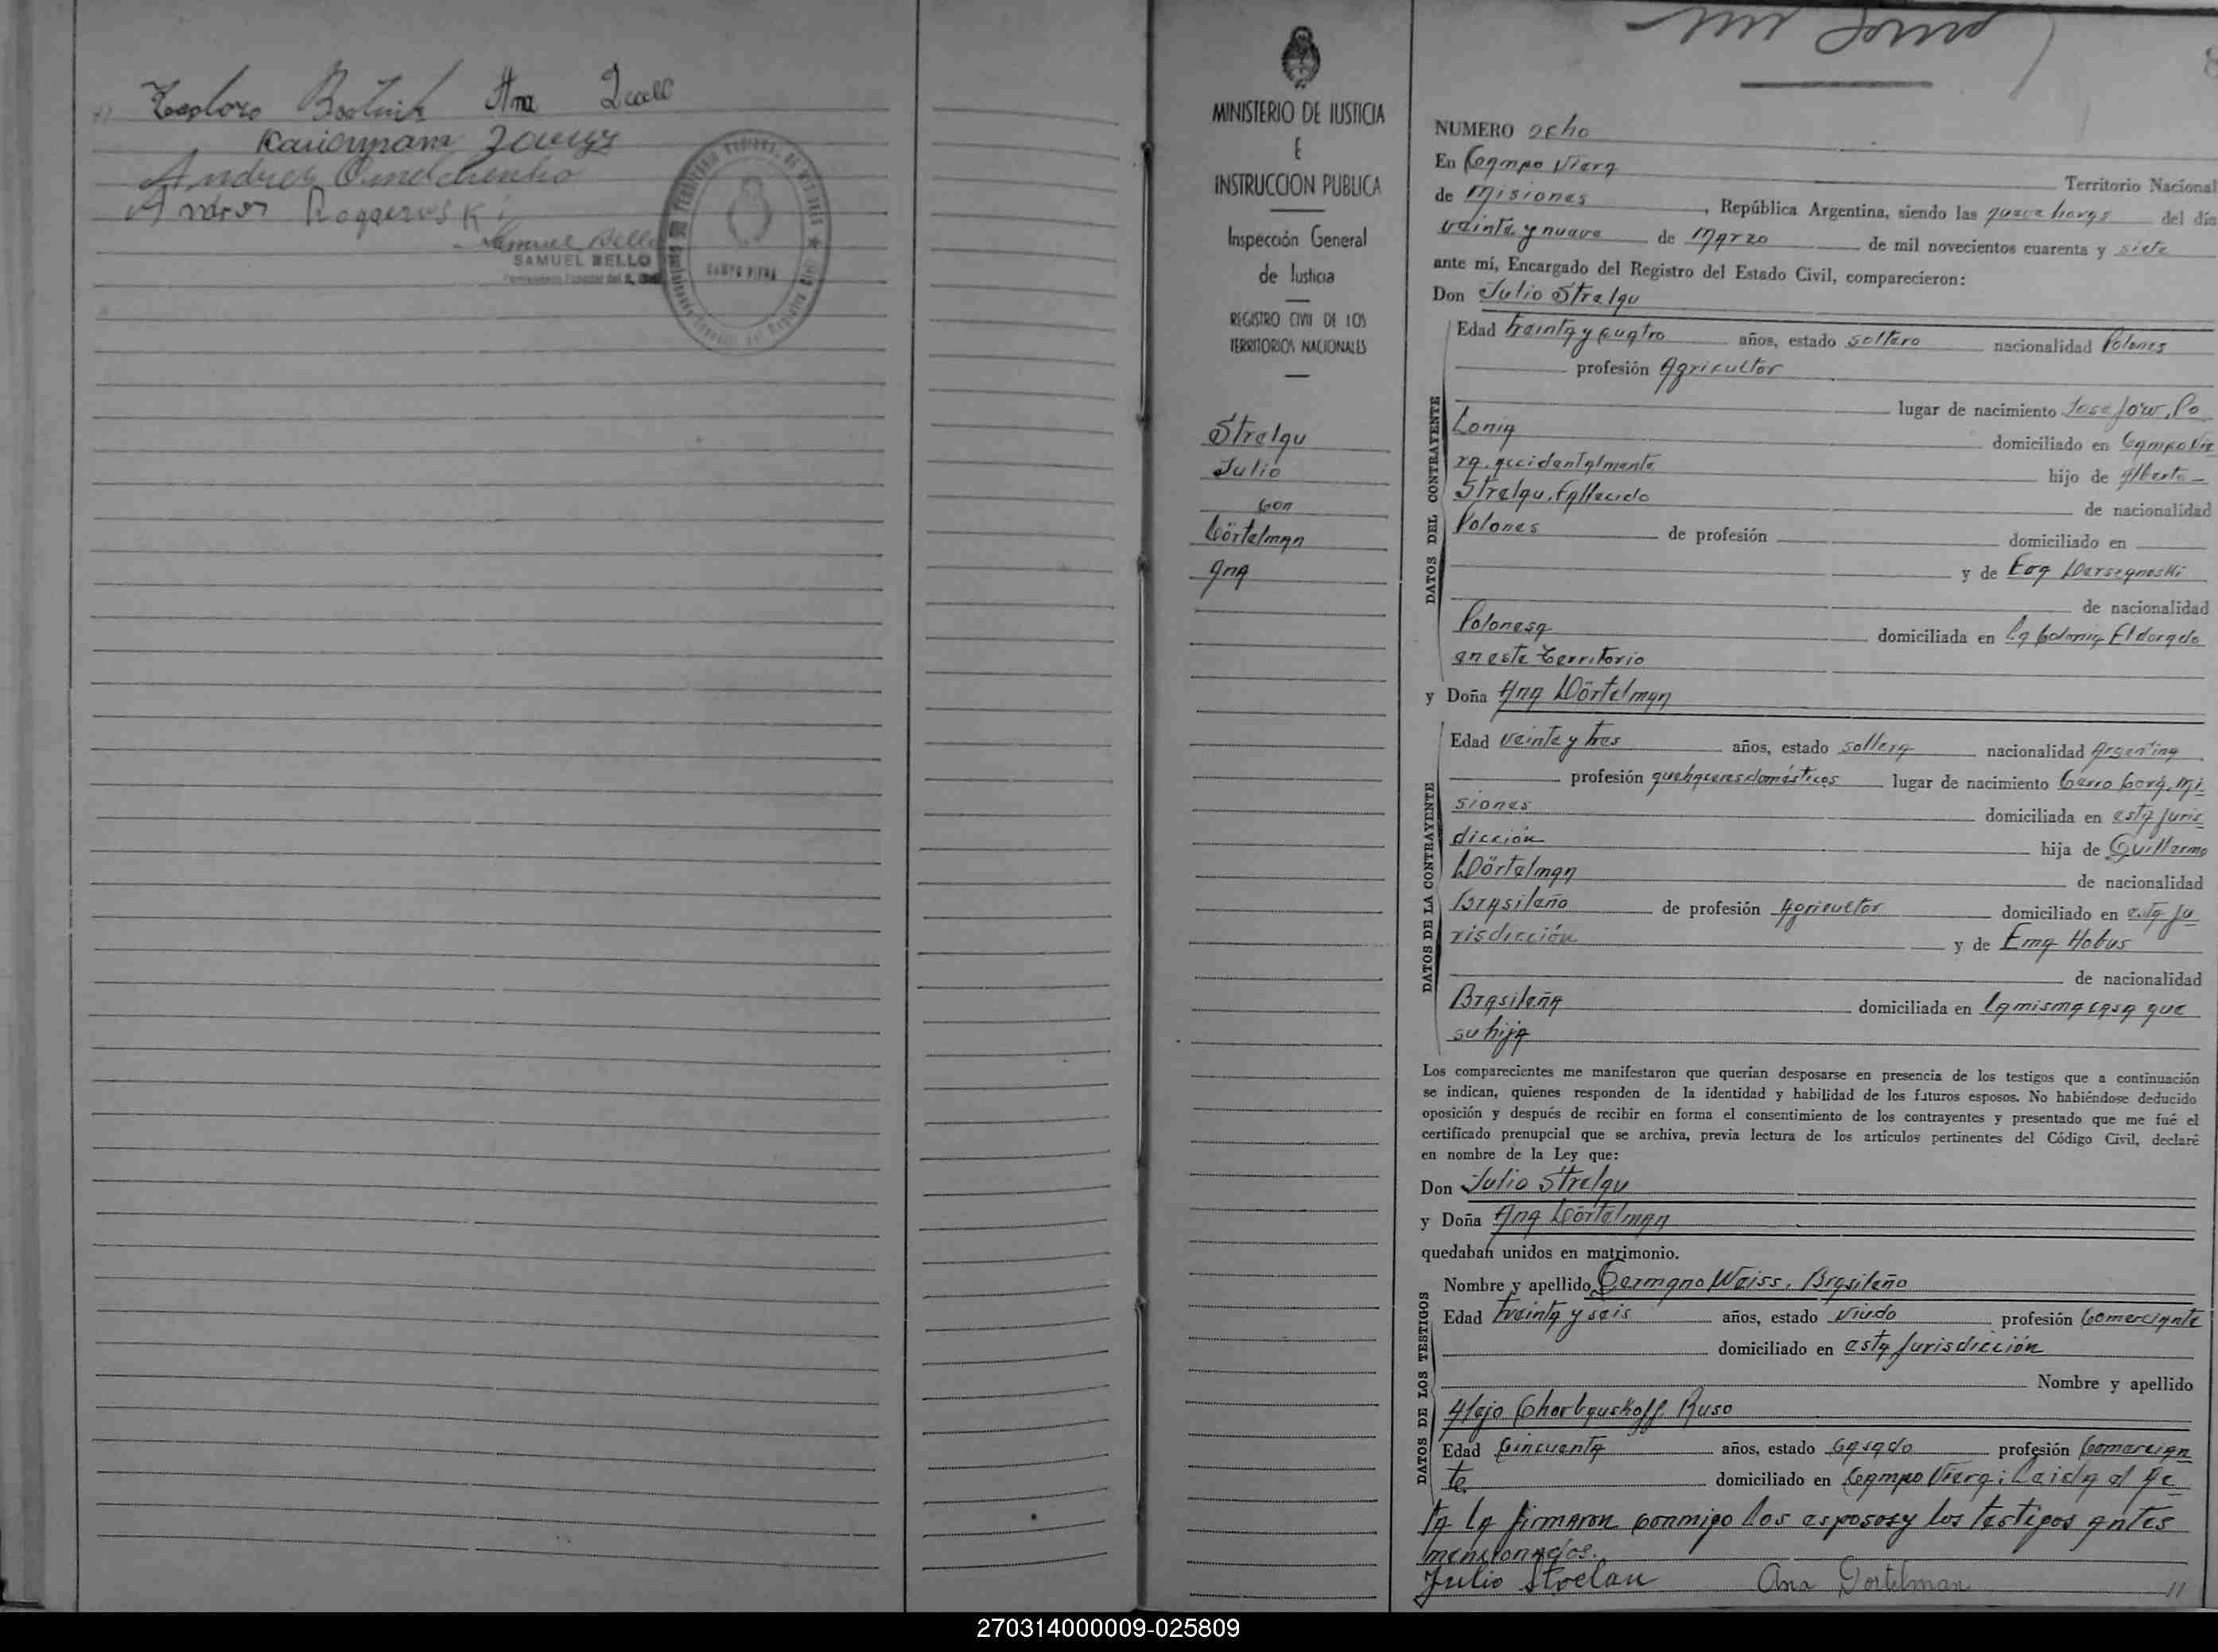 Teodoro Ana
Andres
Andres Roggeroski
Samuel Bello
SAMUEL BELLO
CAMPO VIERA
MINISTERIO DE JUSTICIA
E
INSTRUCCION PUBLICA
Inspección General
de Justicia
REGISTRO CIVIL DE LOS
TERRITORIOS NACIONALES
Strelau
Julio
con
Dörtelman
Ana
NUMERO ocho
En Campo Viera Territorio Nacional
de Misiones, República Argentina, siendo las nueve horas del día
veinte y nueve de Marzo de mil novecientos cuarenta y siete
ante mí, Encargado del Registro del Estado Civil, comparecieron:
Don Julio Strelau
DATOS DEL CONTRAYENTE
Edad treinta y cuatro años, estado soltero nacionalidad Polones
profesión Agricultor
lugar de nacimiento Josefow, Po
lonia domiciliado en Campo Vie
ra accidentalmente hijo de Alberto
Strelau, fallecido de nacionalidad
Polones de profesión domiciliado en
y de Eva
de nacionalidad
Polonesa domiciliada en la Colonia Eldorado
en este Territorio
y Doña Ana Dörtelman
DATOS DE LA CONTRAYENTE
Edad veinte y tres años, estado soltera nacionalidad Argentina
profesión quehaceres domésticos lugar de nacimiento Cerro Corá, Mi
siones domiciliada en esta juris
dicción hija de Guillermo
Dörtelman de nacionalidad
Brasileño de profesión Agricultor domiciliado en esta ju
risdicción y de Ema Hobus
de nacionalidad
Brasileña domiciliada en la misma casa que
su hija
Los comparecientes me manifestaron que querían desposarse en presencia de los testigos que a continuación
se indican, quienes responden de la identidad y habilidad de los futuros esposos. No habiéndose deducido
oposición y después de recibir en forma el consentimiento de los contrayentes y presentado que me fué el
certificado prenupcial que se archiva, previa lectura de los artículos pertinentes del Código Civil, declaré
en nombre de la Ley que:
Don Julio Strelau
y Doña Ana Dörtelman
quedaban unidos en matrimonio.
DATOS DE LOS TESTIGOS
Nombre y apellido Germano Weiss, Brasileño
Edad treinta y seis años, estado viudo profesión Comerciante
domiciliado en esta jurisdicción
Nombre y apellido
Alejo Ruso
Edad Cincuenta años, estado Casado profesión Comercian
te domiciliado en Campo Viera; Leida el Ac
ta la firmaron conmigo los esposos y los testigos antes
mencionados.
Julio Strelau Ana Dortelman //
270314000009-025809